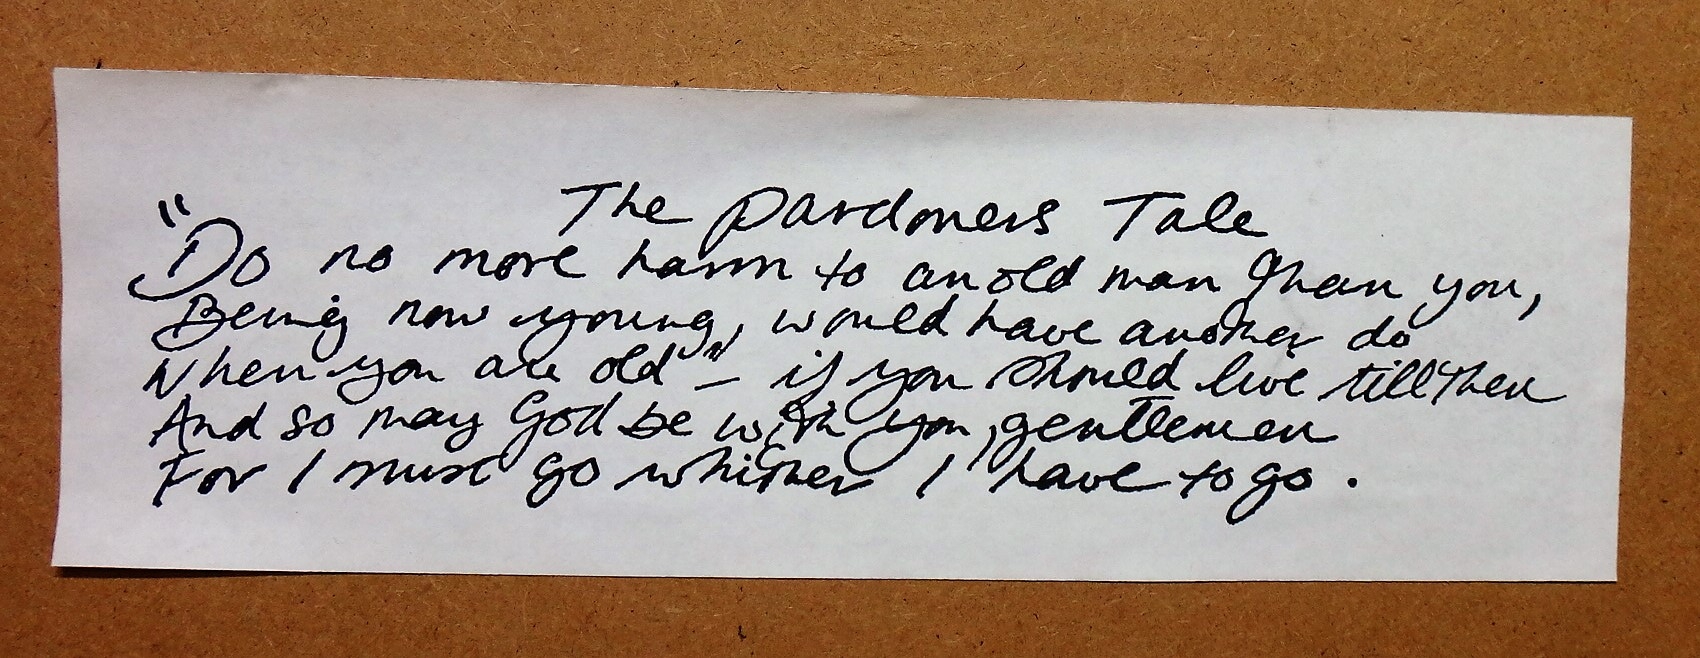 The Pardoners Tale
"Do no more harm to an old man than you,
Being now young, would have another do
When you are old" – if you should live till then
And so may God be with you, gentlemen
For I must go whither I have to go.